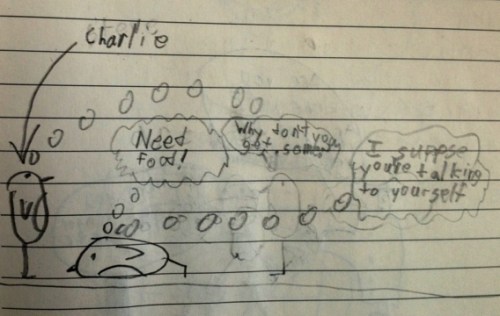 Charlie
Need
Food!
Why don't you
get some?
I suppose
you're talking
to yourself